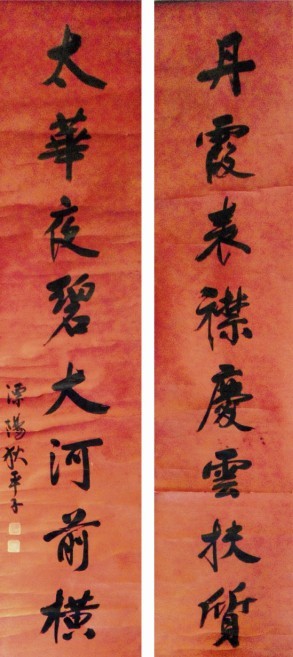 丹霞表襟慶雲扶質
太華夜碧大河前橫
溧陽狄平子